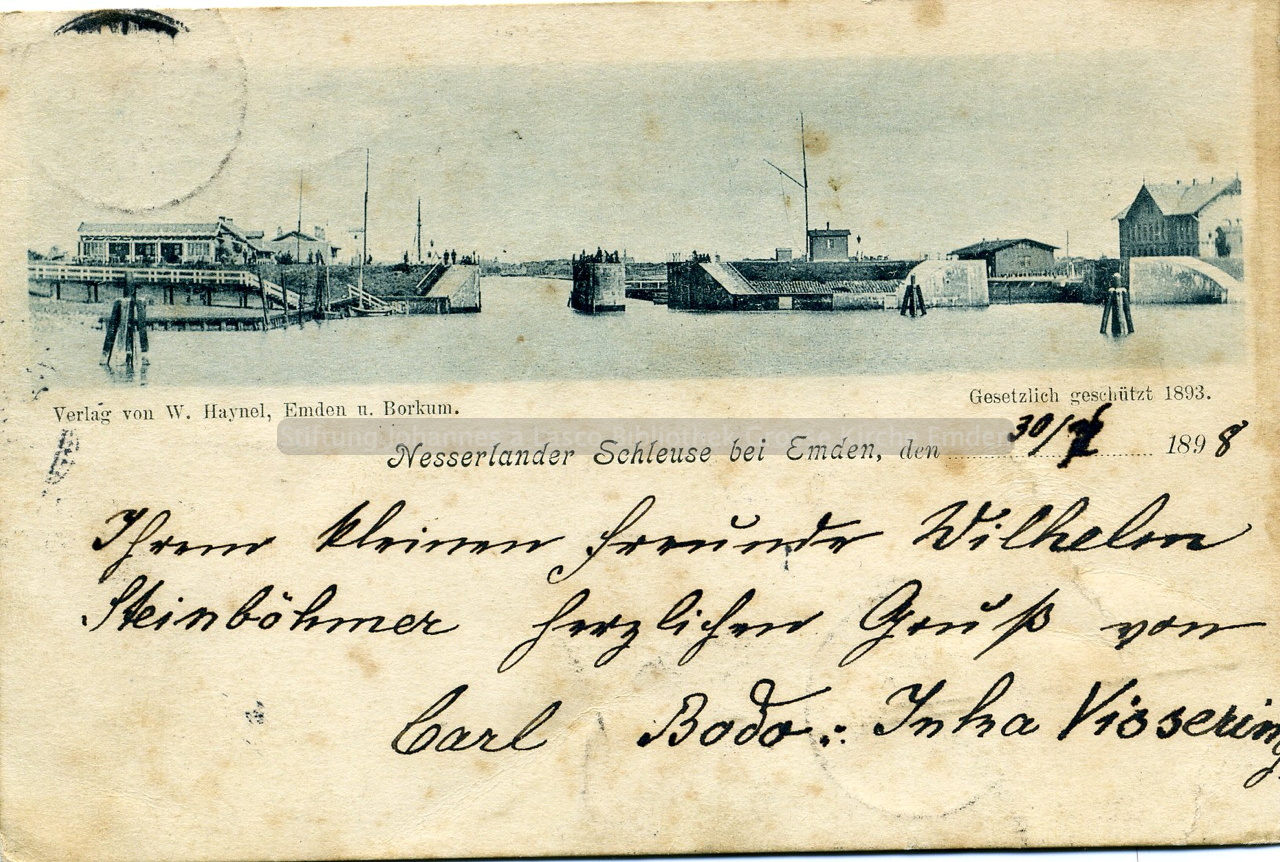 Verlag von W. Haynel, Emden u. Borkum.
Gesetzlich geschützt 1893.
Stiftung Johannes a Lasco Bibliothek Emden
Nesserlander Schleuse bei Emden, den 30/ 1898
Ihrem kleinen Freunde Wilhelm
Steinböhmer herzlichen Gruß von
Carl Bodo : Inka Vissering